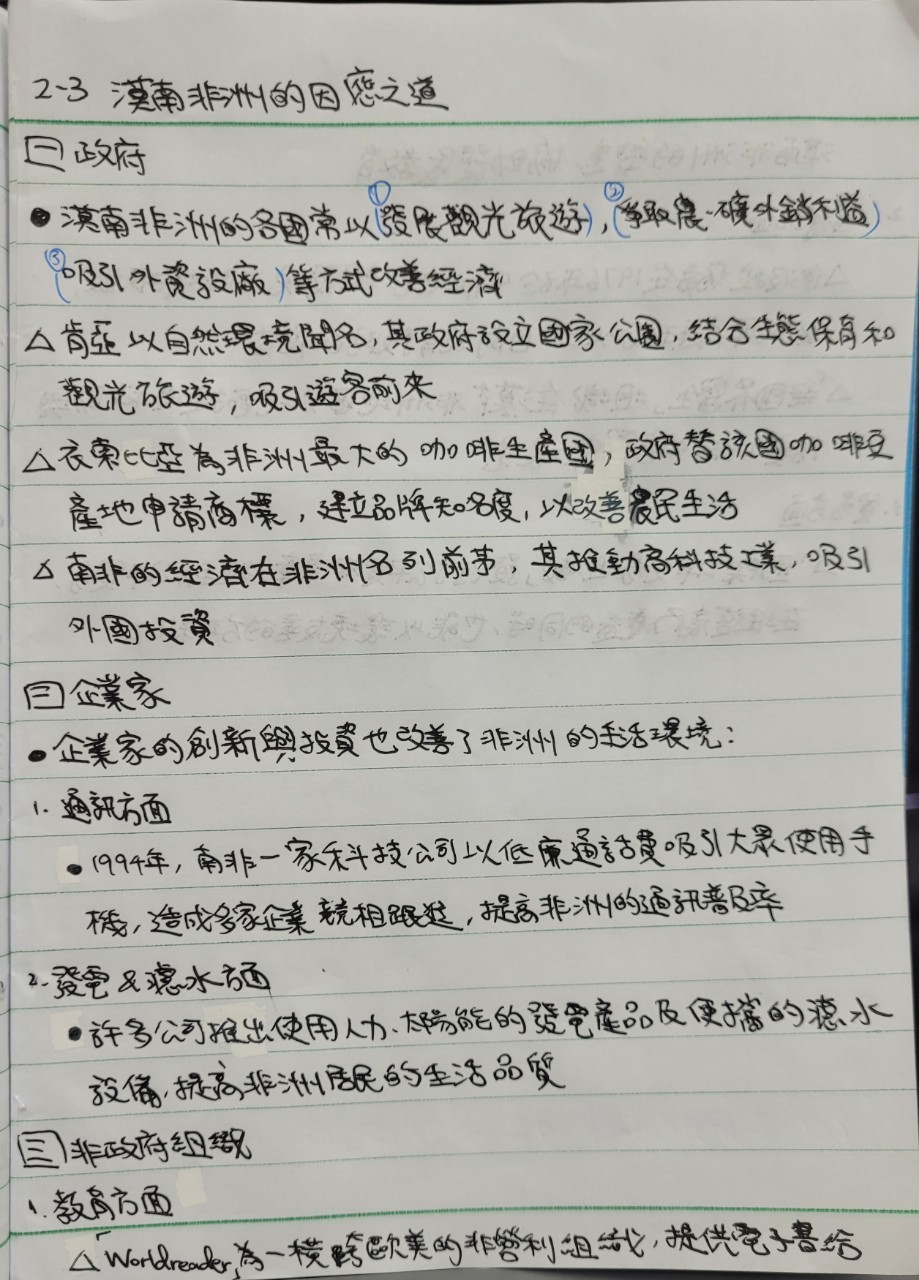 2-3 漠南非洲的因應之道
一 政府
● 漠南非洲的各國常以(①發展觀光旅遊), (②爭取農、礦外銷利益)
(③吸引外資設廠)等方式改善經濟
△ 肯亞以自然環境聞名, 其政府設立國家公園, 結合生態保育和
觀光旅遊, 吸引遊客前來
△ 衣索比亞為非洲最大的咖啡生產國, 政府替該國咖啡豆
產地申請商標, 建立品牌知名度, 以改善農民生活
△ 南非的經濟在非洲名列前茅, 其推動高科技工業, 吸引
外國投資
二 企業家
● 企業家的創新與投資也改善了非洲的生活環境:
1. 通訊方面
● 1994年, 南非一家科技公司以低廉通話費吸引大眾使用手
機, 造成多家企業競相跟進, 提高非洲的通訊普及率
2. 發電&濾水方面
● 許多公司推出使用人力、太陽能的發電產品及便攜的濾水
設備, 提高非洲居民的生活品質
三 非政府組織
1. 教育方面
△「Worldreader」為一橫跨歐美的非營利組織, 提供電子書給